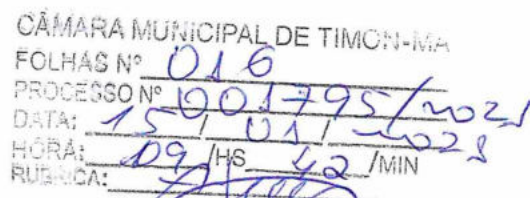 CÂMARA MUNICIPAL DE TIMON-MA
FOLHAS Nº 016
PROCESSO Nº 001795/2021
DATA: 15 / 01 / 2021
HORA: 09 /HS 42 /MIN
RUBRICA: